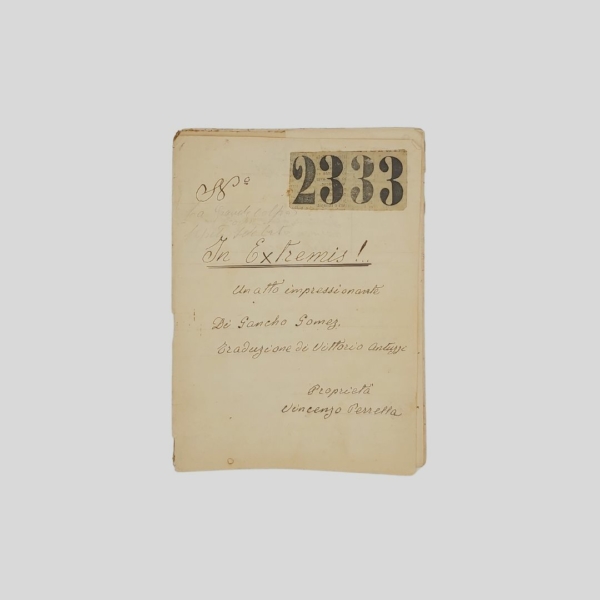 Nº 2333
In Extremis!..
Un atto impressionante
Di Sancho Gomez,
Traduzione di Vittorio
Proprietà
Vincenzo Perrella